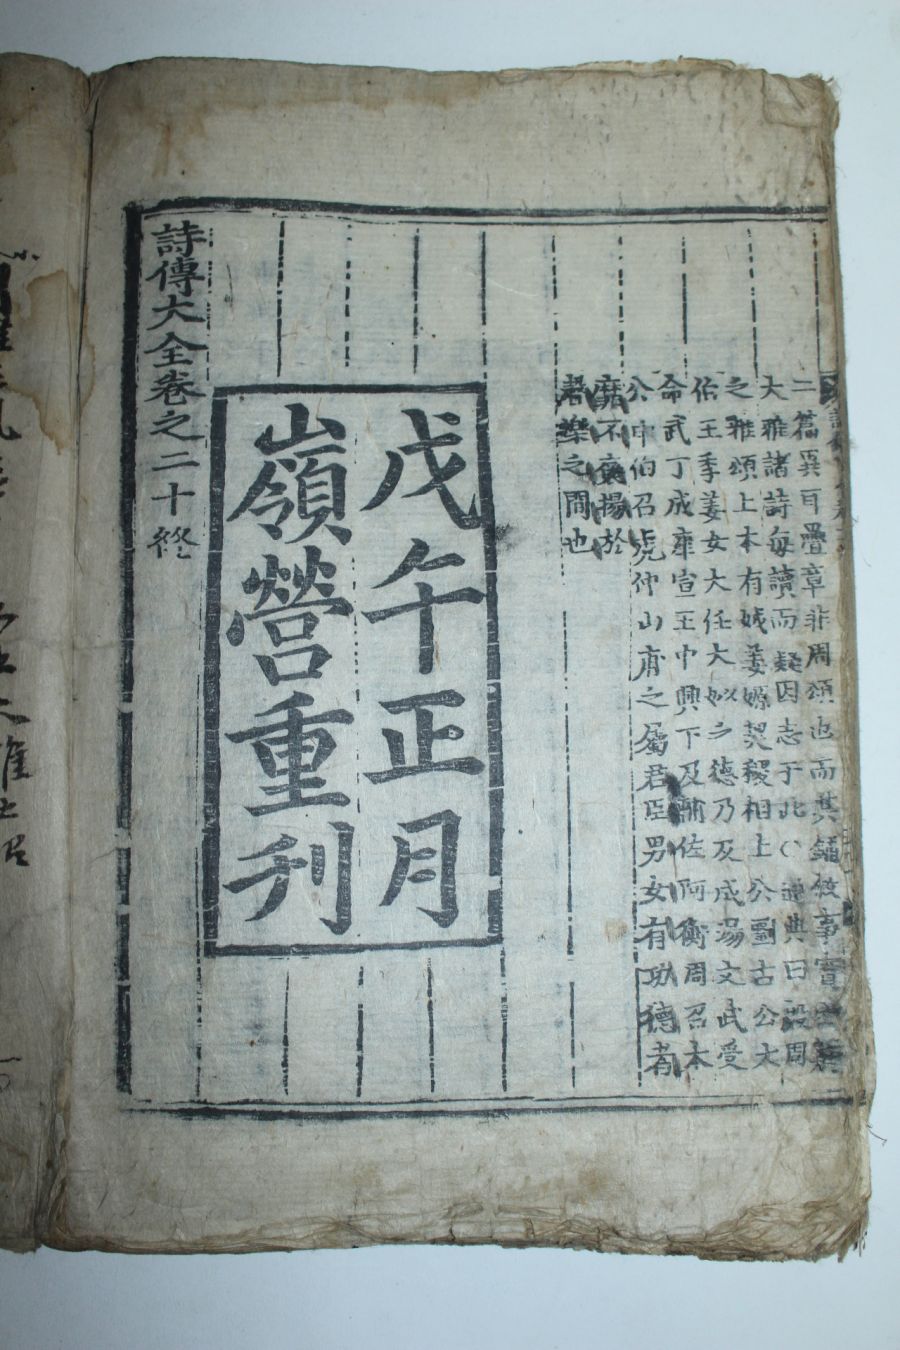 二篇異耳疊章非周頌也而其鋪敘事實
大雅諸詩每讀而疑因志于此○通典曰設周
之雅頌上本有娀姜嫄契稷相土公劉古公大
伯王季姜女大任大姒之德乃及成湯文武受
命武丁成康宣王中興下及輔佐阿衡周召太
公申伯召虎仲山甫之屬君臣男女有功德者
靡不褒揚於
者樂之間也
戊午正月
嶺營重刊
詩傳大全卷之二十終